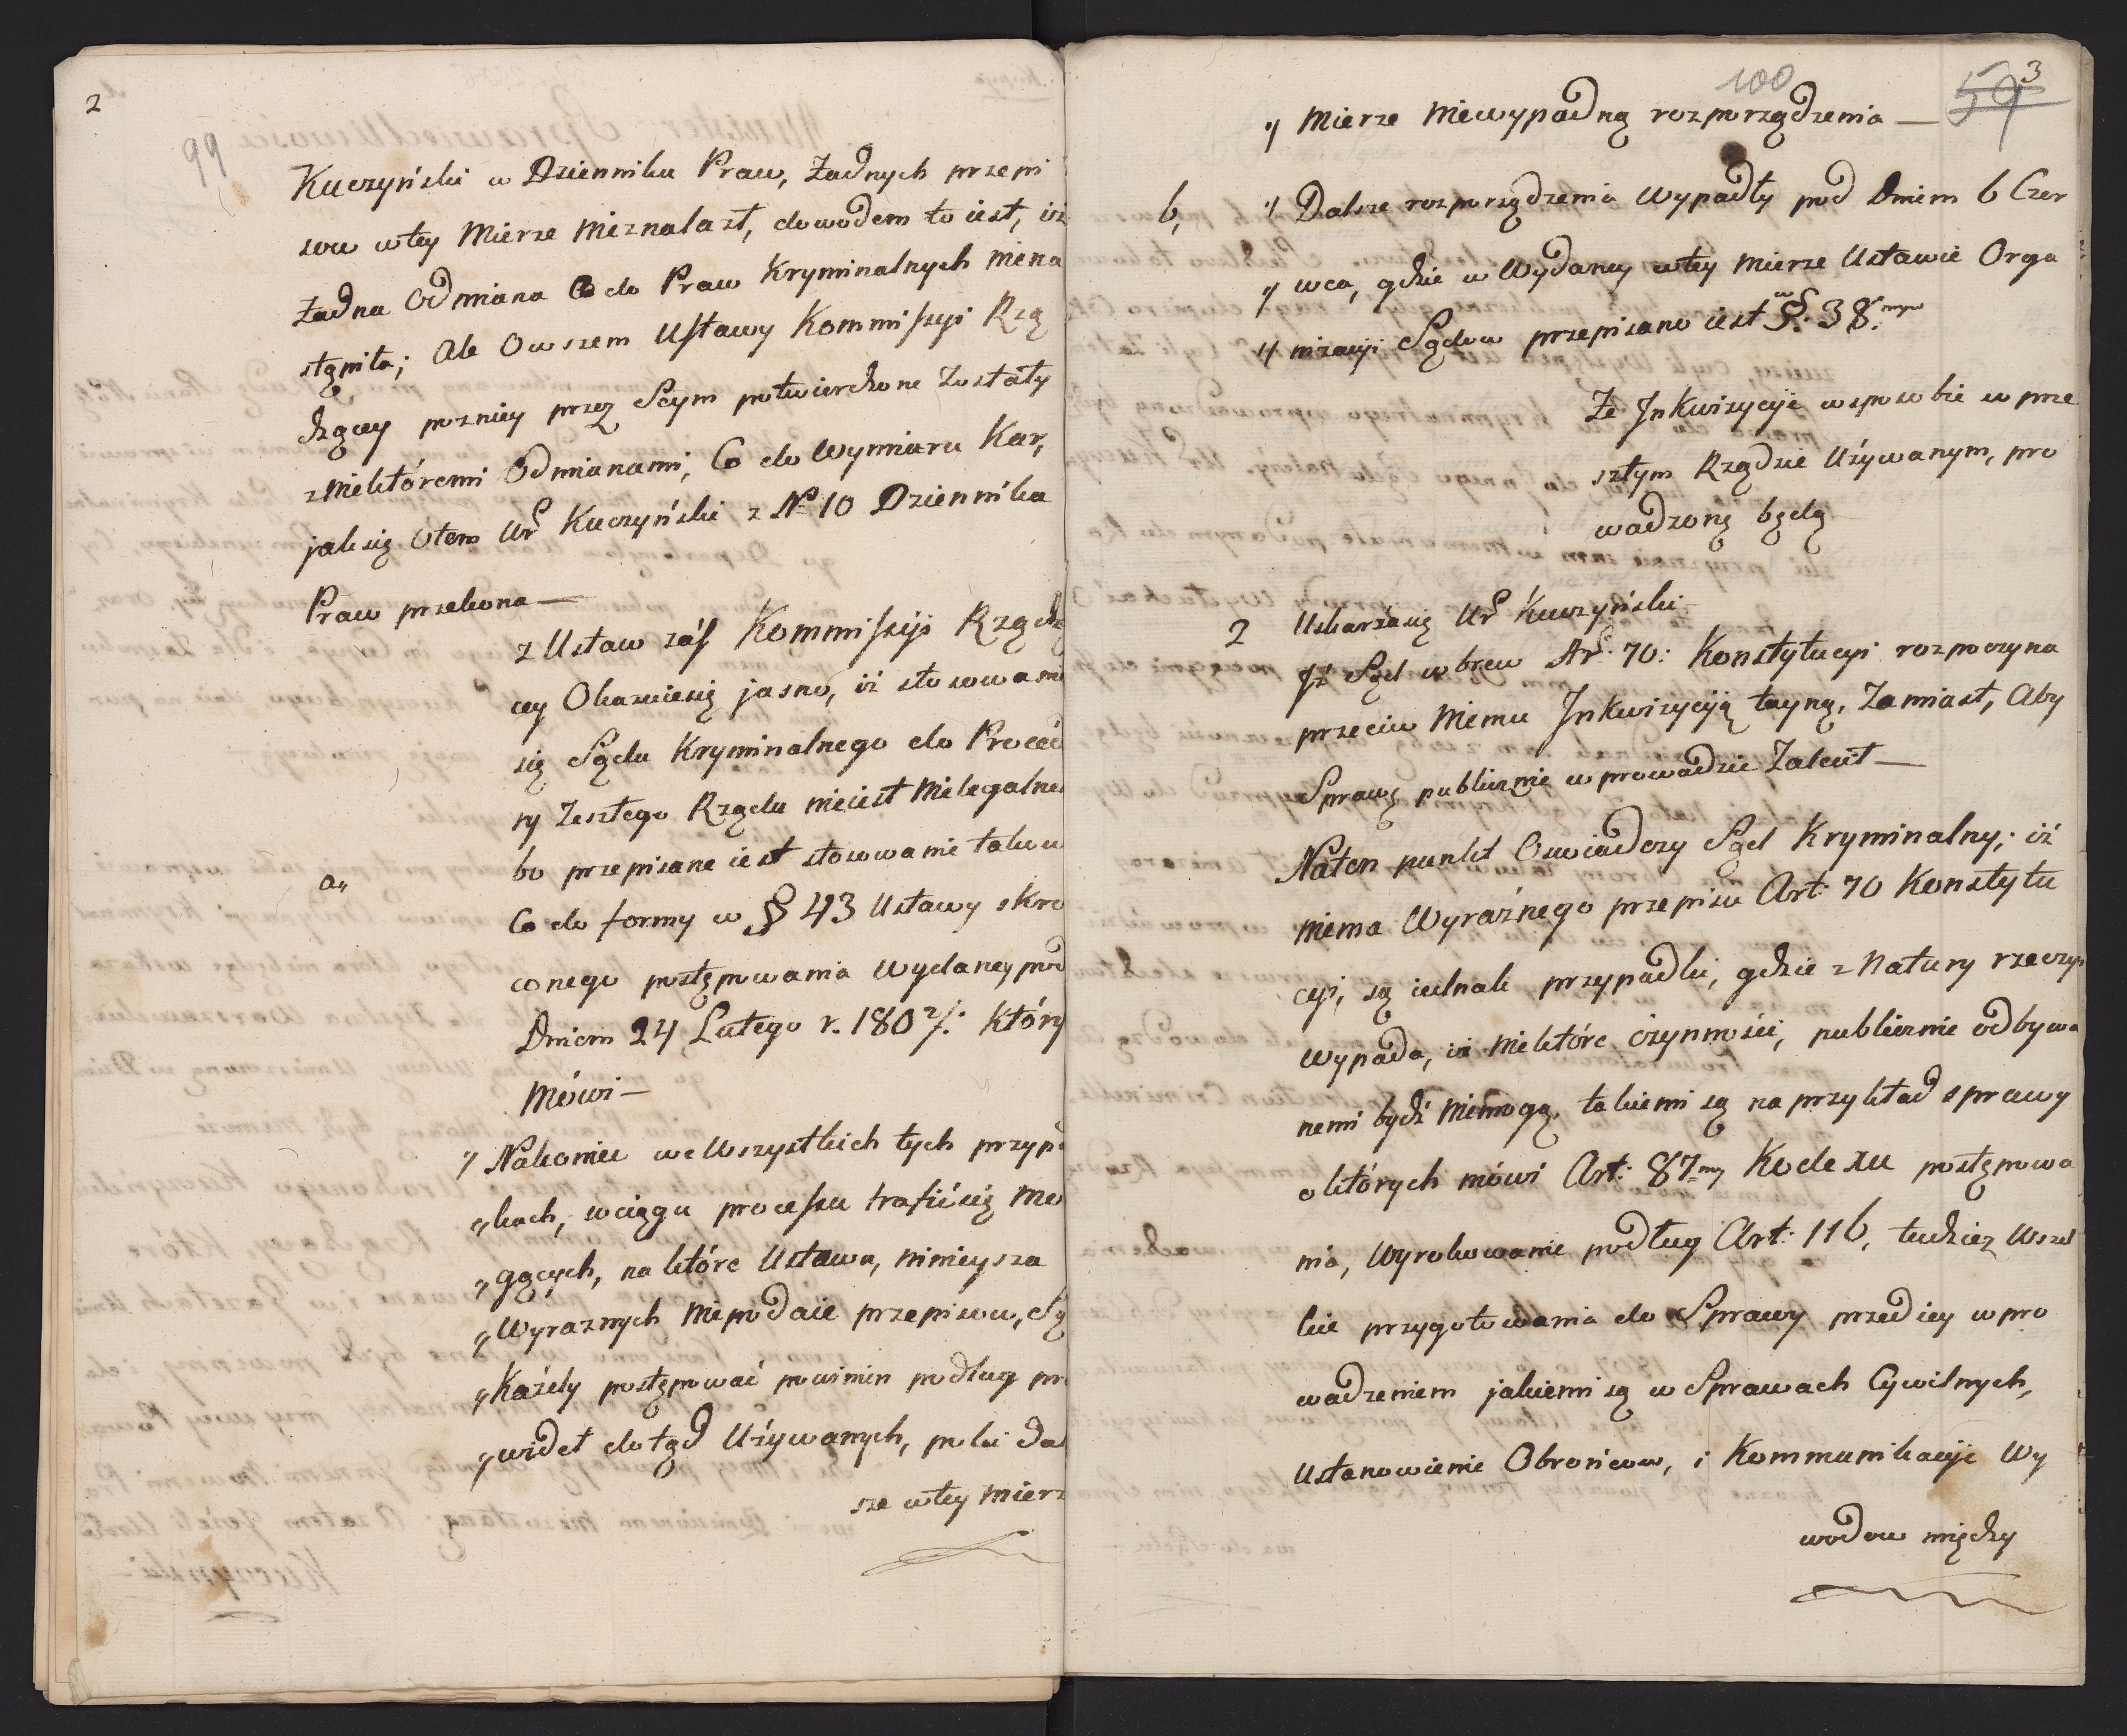 2
99
Kuczyński w Dzienniku Praw, żadnych przepi
sow wtey Mierze nieznalazł, dowodem to iest, iż
żadna Odmiana Co do Praw Kryminalnych niena
stąpiła; Ale Owszem Ustawy Kommissyi Rzą
dzącey pozniey przez Seym potwierdzone Zostały
z niektóremi Odmianami, Co do Wymiaru Kar,
jak się Otem Ur Kuczyński z No 10 Dziennika
Praw przekona —
z Ustaw záś Kommissyi Rządzą
cey Okazuiesię jasno, iż stosowanie
się Sądu Kryminalnego do Procedu
ry Zeszłego Rządu nieiest nielegalne
bo przepisane iest stosowanie takow
a,,
Co do formy w § 43 Ustawy skro
conego postępowania wydaney pod
Dniem 24 Lutego r. 1807. Który
Mówi —
„ Nakoniec we Wszystkich tych przypa
„ kach, wciągu processu trafićsię mo
„ gących, na które Ustawa, ninieysza
„ Wyraznych niepodaie przepisow, Są
„ Każdy postępować powinien podług pra
„ wideł dotąd Używanych, poki dal
sze wtey mierz
100
59
3
„ Mierze Niewypadną rozporządzenia —
b,
„ Dalsze rozporządzenia Wypadły pod Dniem 6 Czer
„ wca, gdzie w Wydaney wtey mierze Ustawie Orga
„ nizacyi Sądow przepisano iest w §. 38.mym
Że Inkwizycyie wsposobie w prze
szłym Rządzie Używanym, pro
wadzone będą
2
Uskarżasię Ur Kuczyński
Iż Sąd wbrew Ar. 70: Konstytucyi rozpoczyna
przeciw Niemu Inkwizycyją tayną, Zamiast, Aby
Sprawę publicznie wprowadzić Zalecił —
Naten punkt Oswiadczy Sąd Kryminalny; iż
niema Wyraźnego przepisu Art: 70 Konstytu
cyi, są iednak przypadki, gdzie z Natury rzeczy
wypada, iż niektóre czynności, publicznie odbywa
nemi bydź niemogą, takiemi są na przykład sprawy
o których mówi Art: 87.my Kodexu postępowa
nia, Wyrokowanie podług Art: 116, tudzież Wszel
kie przygotowania do Sprawy przed iey wpro
wadzeniem jakiemi są w Sprawach Cywilnych,
Ustanowienie Obrońcow, i Kommunikacyie Wy
wodow między